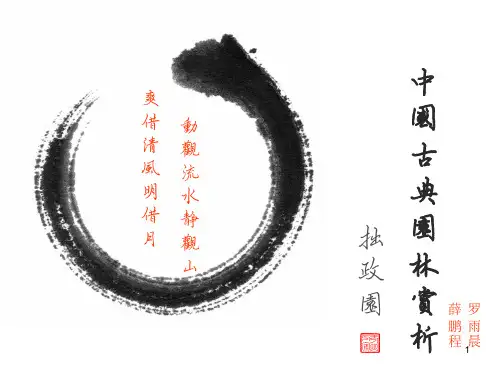 中國古典園林賞析
拙政園
罗雨晨
薛鹏程
動觀流水靜觀山
爽借清風明借月
1